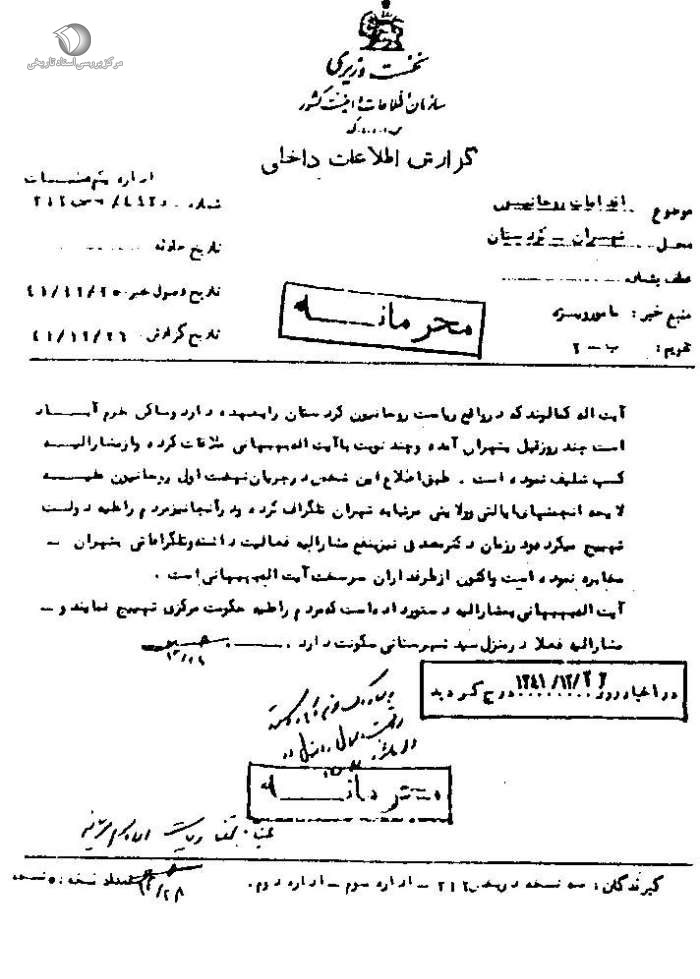 مرکز بررسی اسناد تاریخی
نخست وزیری
سازمان اطلاعات و امنیت کشور
گزارش اطلاعات داخلی
اداره یکم عملیات
موضوع اقدامات روحانیون
شماره
محل تهران – کردستان
تاریخ حادثه
عطف بشماره
تاریخ وصول خبر ۴۱/۱۲/۲۵
منبع خبر : مامورویژه
تاریخ گزارش ۴۱/۱۲/۲۶
تقویم : ب – ۲
محرمانه
آیت اله کمالوند که در واقع ریاست روحانیون کردستان را بعهده دارد و ساکن خرم آباد
است چند روز قبل بتهران آمده و چند نوبت با آیت اله بهبهانی ملاقات کرده و از مشارالیه
کسب تکلیف نموده است . طبق اطلاع این شخص در جریان نهضت اولی روحانیون علیه
لایحه انجمنهای ایالتی و ولایتی مرتبا به تهران تلگراف کرده و در آنجا نیز مردم را علیه دولت
تهییج میکرد و در زمان دکتر مصدق نیز بنفع مشارالیه فعالیت داشته و تلگرافاتی بتهران –
مخابره نموده است و اکنون از طرفداران سرسخت آیت اله بهبهانی است .
آیت اله بهبهانی بمشارالیه دستور داده است که مردم را علیه حکومت مرکزی تهییج نمایند و –
مشارالیه فعلا در منزل سید شهرستانی سکونت دارد .
در اخبار روز ۱۳۴۱/۱۲/۲۶ درج گردید
محرمانه
گیرندگان : سه نسخه در بخش ۲۱۲ – اداره سوم – اداره دوم . تعداد نسخه : ۵ نسخه
۱۲/۲۸